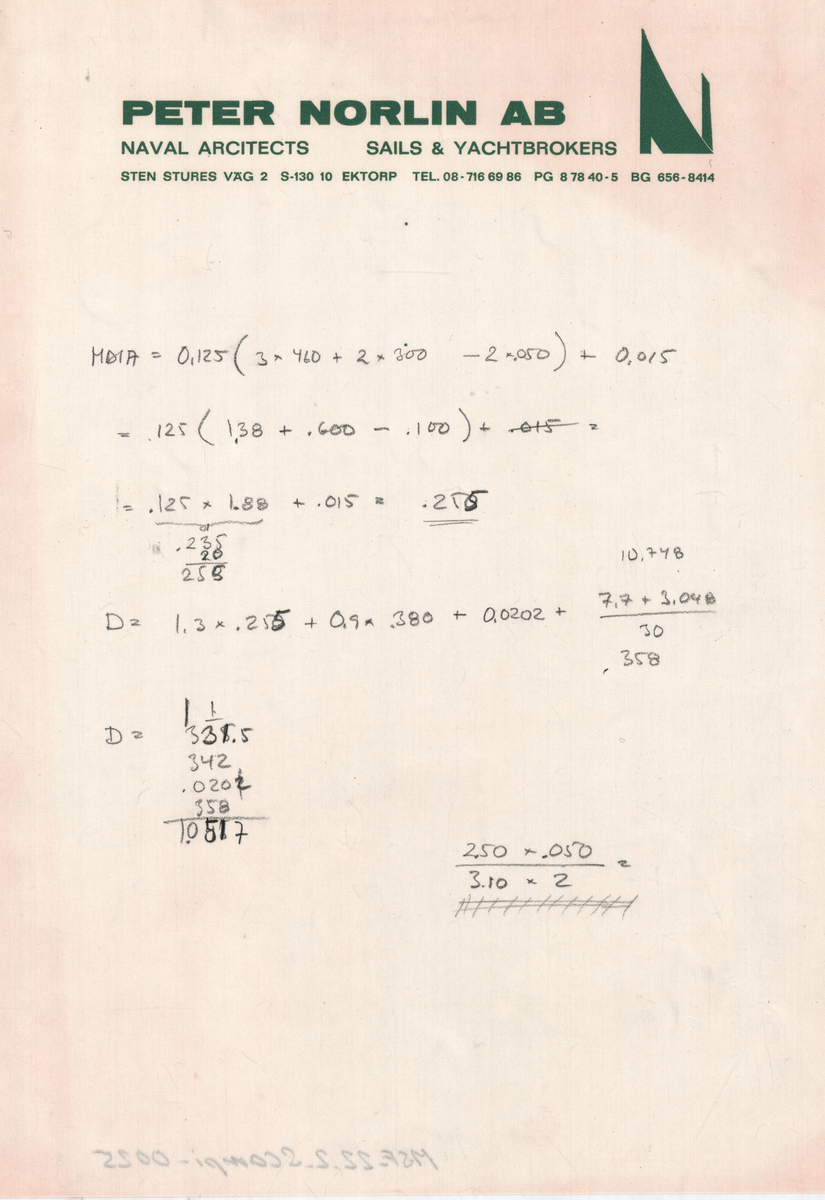 PETER NORLIN AB
NAVAL ARCITECTS SAILS & YACHTBROKERS
STEN STURES VÄG 2 S-130 10 EKTORP TEL. 08-716 69 86 PG 8 78 40-5 BG 656-8414
MDIA = 0,125 ( 3 × 460 + 2 × 300 - 2 × .050 ) + 0,015
= .125 ( 1,38 + .600 - .100 ) + .015 =
= .125 × 1.88 + .015 = .255
.235
20
255
10,748
D = 1.3 × .255 + 0,9 × .380 + 0,0202 + 7,7 + 3.048
30
.358
D = 331.5
342
.0202
358
1.0517
2.50 × .050 =
3.10 × 2
MSF.22.2.Scampi-0025